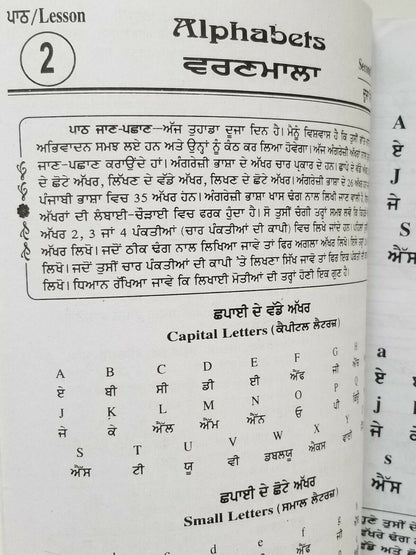 ਪਾਠ/Lesson
2
Alphabets
ਵਰਣਮਾਲਾ
ਪਾਠ ਜਾਣ-ਪਛਾਣ—ਅੱਜ ਤੁਹਾਡਾ ਦੂਜਾ ਦਿਨ ਹੈ। ਮੈਨੂੰ ਵਿਸ਼ਵਾਸ ਹੈ ਕਿ ਤੁਸੀਂ
ਅਭਿਵਾਦਨ ਸਮਝ ਲਏ ਹਨ ਅਤੇ ਉਨ੍ਹਾਂ ਨੂੰ ਕੰਠ ਕਰ ਲਿਆ ਹੋਵੇਗਾ। ਅੱਜ ਅੰਗਰੇਜ਼ੀ
ਜਾਣ-ਪਛਾਣ ਕਰਾਉਂਦੇ ਹਾਂ। ਅੰਗਰੇਜ਼ੀ ਭਾਸ਼ਾ ਦੇ ਅੱਖਰ ਚਾਰ ਪ੍ਰਕਾਰ ਦੇ ਹਨ। ਛਾਪੇ ਦੇ ਵੱਡੇ
ਦੇ ਛੋਟੇ ਅੱਖਰ, ਲਿੱਖਣ ਦੇ ਵੱਡੇ ਅੱਖਰ, ਲਿਖਣ ਦੇ ਛੋਟੇ ਅੱਖਰ। ਅੰਗਰੇਜ਼ੀ ਭਾਸ਼ਾ ਦੇ 26 ਅੱਖਰ
ਪੰਜਾਬੀ ਭਾਸ਼ਾ ਵਿਚ 35 ਅੱਖਰ ਹਨ। ਅੰਗਰੇਜ਼ੀ ਭਾਸ਼ਾ ਖਾਸ ਢੰਗ ਨਾਲ ਲਿਖੀ ਜਾਣ ਵਾਲੀ ਹੈ।
ਅੱਖਰਾਂ ਦੀ ਲੰਬਾਈ-ਚੌੜਾਈ ਵਿਚ ਫਰਕ ਹੁੰਦਾ ਹੈ। ਸੋ ਤੁਸੀਂ ਚੰਗੀ ਤਰ੍ਹਾਂ ਸਮਝ ਲਵੋ ਕਿ
ਅੱਖਰ 2, 3 ਜਾਂ 4 ਪੰਕਤੀਆਂ (ਚਾਰ ਪੰਕਤੀਆਂ ਦੀ ਕਾਪੀ) ਵਿਚ ਲਿਖੇ ਜਾਂਦੇ ਹਨ।
ਅੱਖਰ ਲਿਖੋ। ਜਦੋਂ ਠੀਕ ਢੰਗ ਨਾਲ ਲਿਖਿਆ ਜਾਵੇ ਤਾਂ ਫਿਰ ਅਗਲਾ ਅੱਖਰ ਲਿਖੋ।
ਲਿਖੋ। ਜਦੋਂ ਤੁਸੀਂ ਚਾਰ ਪੰਕਤੀਆਂ ਦੀ ਕਾਪੀ 'ਤੇ ਲਿਖਣਾ ਸਿੱਖ ਜਾਵੋ ਤਾਂ ਫਿਰ ਇਕ
ਲਿਖੋ। ਧਿਆਨ ਰੱਖਿਆ ਜਾਵੇ ਕਿ ਲਿਖਾਈ ਮੋਤੀਆਂ ਦੀ ਤਰ੍ਹਾਂ ਹੋਣੀ ਇਕ ਗੁਣ ਹੈ।
ਛਪਾਈ ਦੇ ਵੱਡੇ ਅੱਖਰ
Capital Letters (ਕੈਪੀਟਲ ਲੈਟਰਜ਼)
A B C D E F G H
ਏ ਬੀ ਸੀ ਡੀ ਈ ਐੱਫ ਜੀ
J K L M N O P Q
ਜੇ ਕੇ ਐੱਲ ਐੱਮ ਐੱਨ ਓ ਪੀ
S T U V W X Y
ਐੱਸ ਟੀ ਯੂ ਵੀ ਡਬਲਯੂ ਐਕਸ ਵਾਈ
ਛਪਾਈ ਦੇ ਛੋਟੇ ਅੱਖਰ
Small Letters (ਸਮਾਲ ਲੈਟਰਜ਼)
d e f g
A
ਏ
J
ਜੇ
S
ਐੱਸ
a
ਏ
j
ਜੇ
s
ਐੱਸ